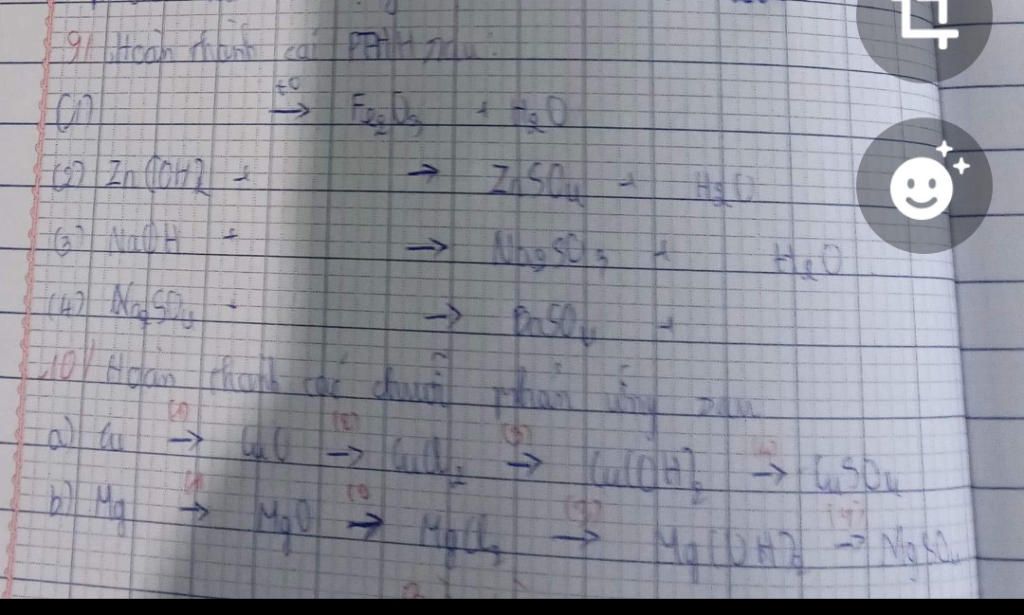 9/ Hoàn thành các PTHH sau:
(1) t° → Fe₂O₃ + H₂O
(2) Zn(OH)₂ + → ZnSO₄ + H₂O
(3) NaOH + → Na₂SO₃ + H₂O
(4) Na₂SO₄ + → BaSO₄ +
10/ Hoàn thành các chuỗi phản ứng sau
a) Cu (1)→ CuO (2)→ CuCl₂ (3)→ Cu(OH)₂ (4)→ CuSO₄
b) Mg (1)→ MgO (2)→ MgCl₂ (3)→ Mg(OH)₂ (4)→ MgSO₄